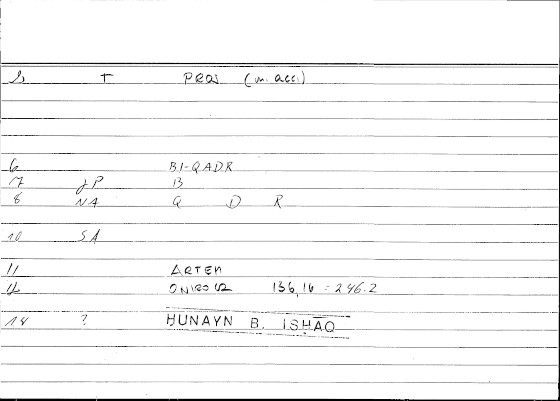 ب + PROS (w. acc.)
6 BI-QADR
7 JP B
8 NA Q D R
10 SA
11 ARTEM
12 ONIROCR 136,16 = 246.2
14 ? HUNAYN B. ISḤĀQ